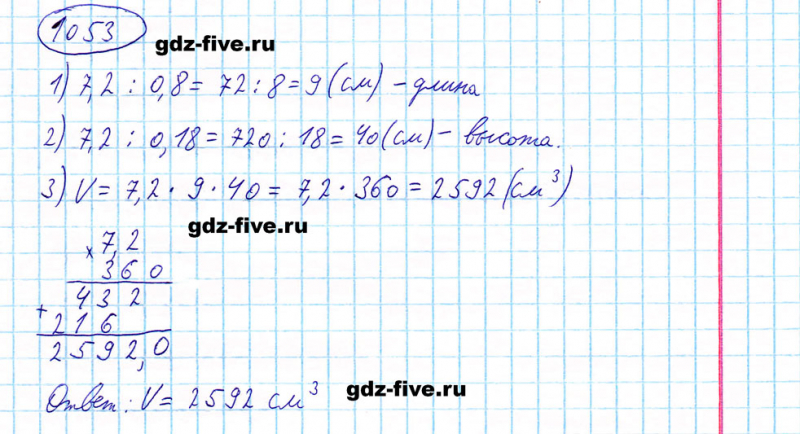 1053
gdz-five.ru
1) 7,2 : 0,8 = 72 : 8 = 9 (см) – длина
2) 7,2 : 0,18 = 720 : 18 = 40 (см) – высота.
3) V = 7,2 · 9 · 40 = 7,2 · 360 = 2592 (см³)
gdz-five.ru
× 7,2
360
432
+ 216
2592,0
Ответ: V = 2592 см³
gdz-five.ru